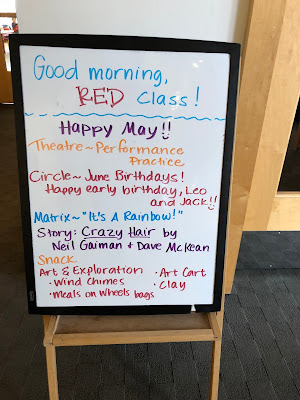 Good morning,
RED Class!
Happy May!!
Theatre~ Performance
Practice
Circle~ June Birthdays!
Happy early birthday, Leo
and Jack!!
Matrix~ "It's A Rainbow!"
Story: Crazy Hair by
Neil Gaiman + Dave McKean
Snack
Art & Exploration
• Wind Chimes
• Meals on Wheels bags
• Art Cart
• Clay